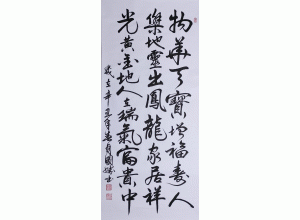 物華天寶增福壽人
傑地靈出鳳龍家居祥
光黃金地人立瑞氣富貴中
歲在辛